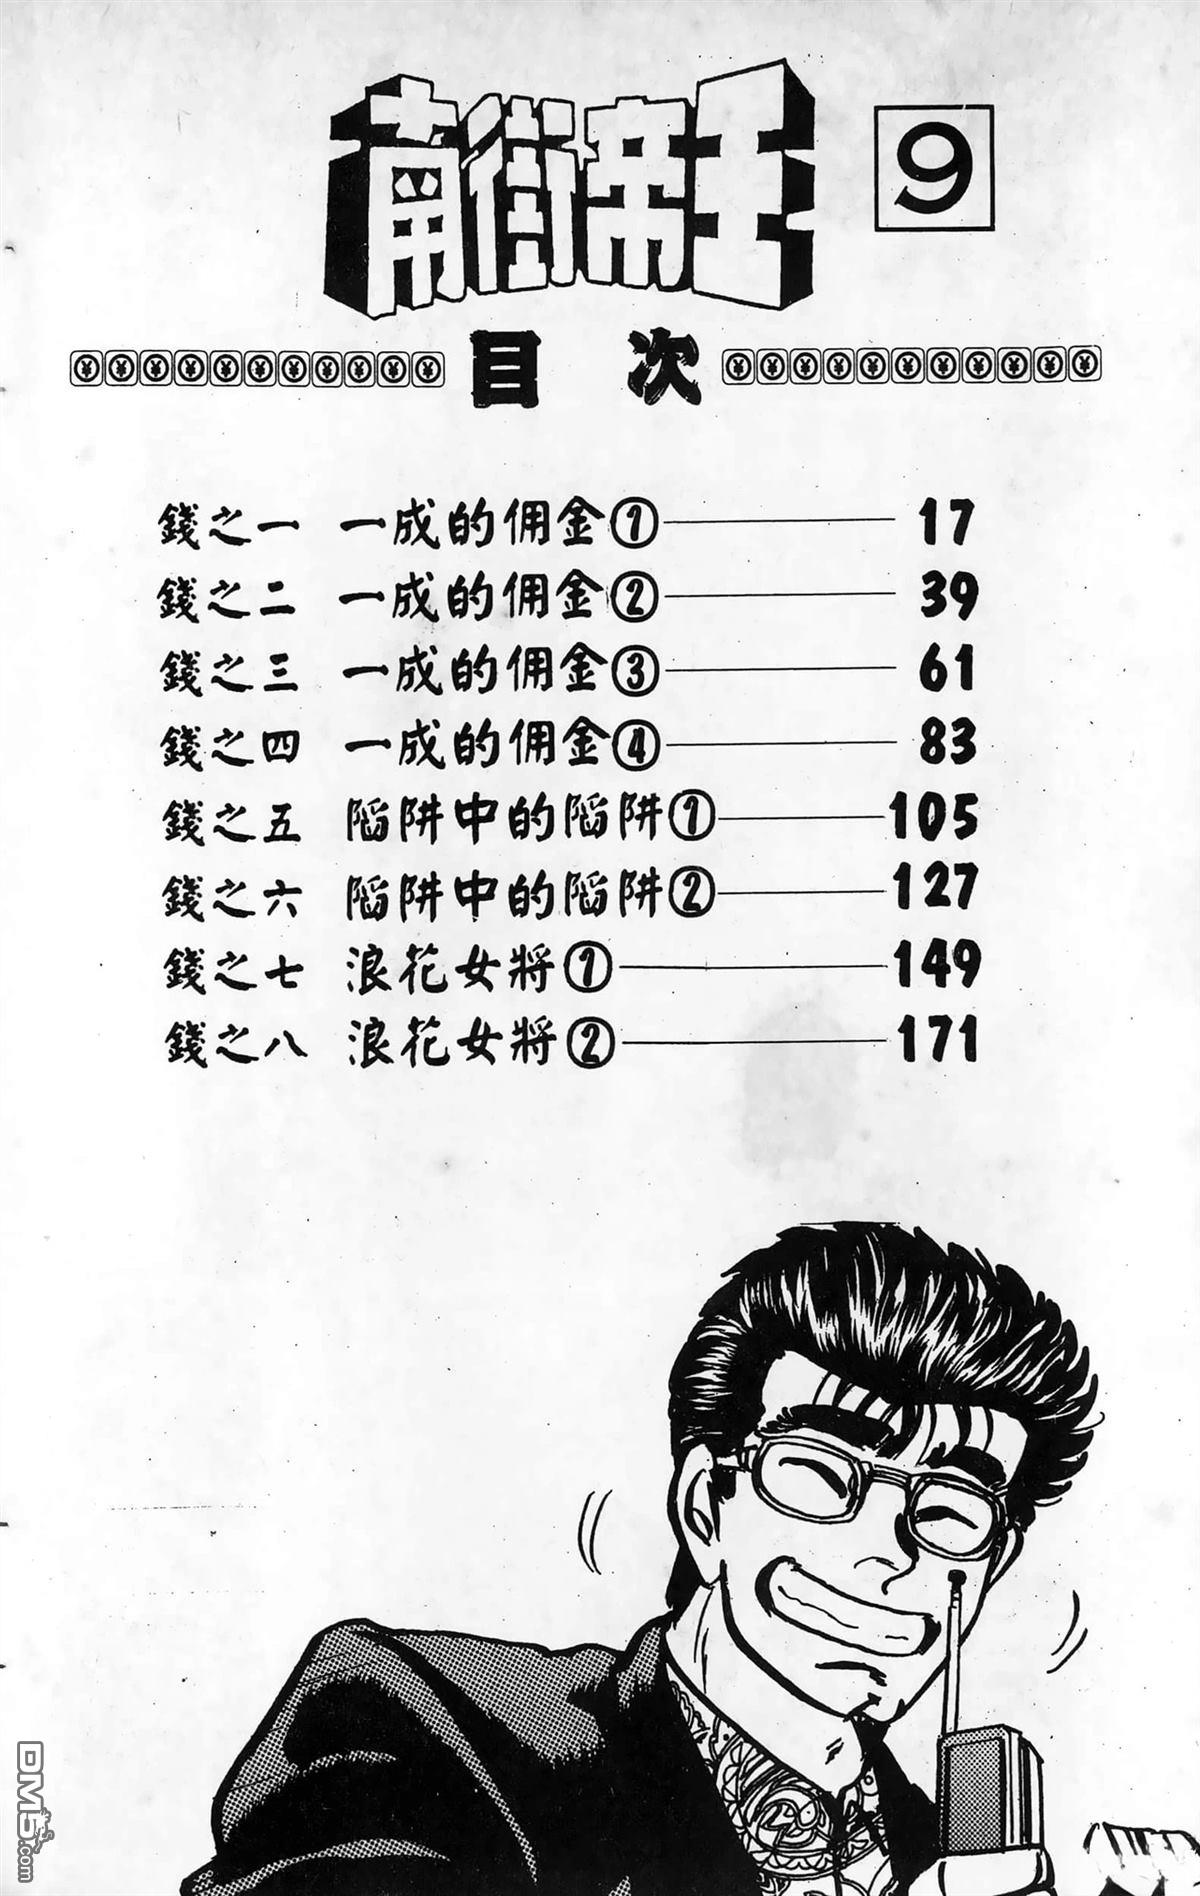 南街帝王 9
目次
錢之一 一成的佣金① 17
錢之二 一成的佣金② 39
錢之三 一成的佣金③ 61
錢之四 一成的佣金④ 83
錢之五 陷阱中的陷阱① 105
錢之六 陷阱中的陷阱② 127
錢之七 浪花女將① 149
錢之八 浪花女將② 171
DM5.com